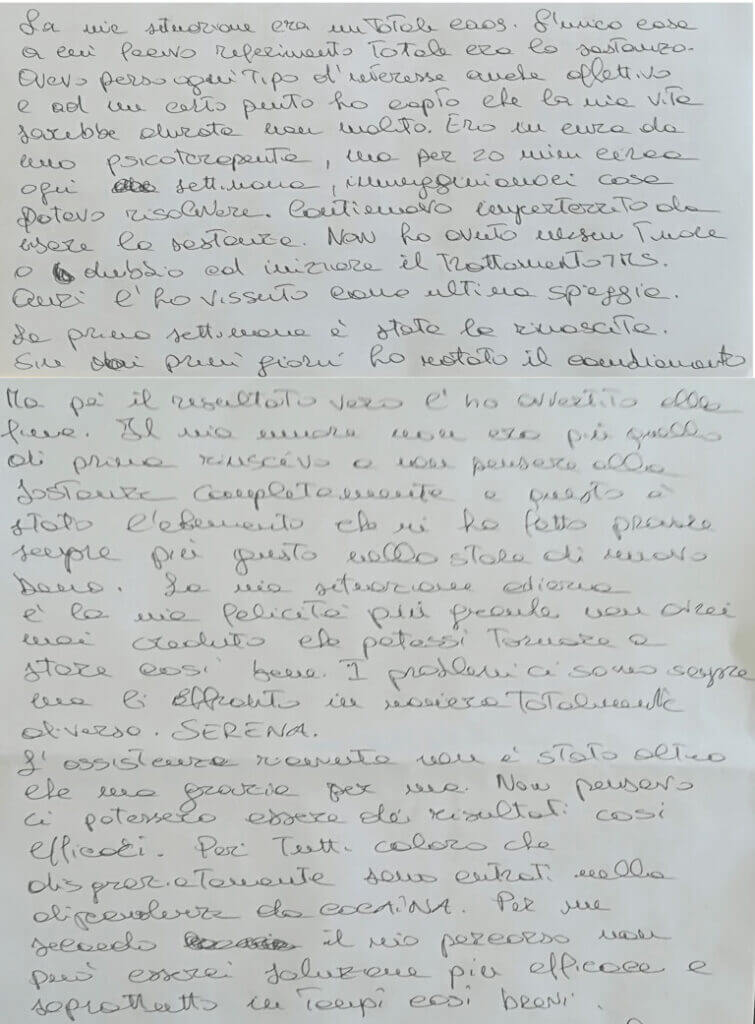 La mia situazione era un totale caos. L'unica cosa
a cui facevo riferimento totale era la sostanza.
Avevo perso ogni tipo d'interesse anche affettivo
e ad un certo punto ho capito che la mia vita
sarebbe durata non molto. Ero in cura da
uno psicoterapeuta, ma per 20 min circa
ogni settimana, immagginiamoci cosa
potevo risolvere. Continuavo imperterrito ad
usare la sostanza. Non ho avuto nessun timore
o dubbio ad iniziare il trattamento TMS.
Anzi l'ho vissuto come ultima spiaggia.
La prima settimana è stata la rinascita.
Sin dai primi giorni ho notato il cambiamento
Ma poi il risultato vero l'ho avvertito alla
fine. Il mio umore non era più quello
di prima riuscivo a non pensare alla
sostanza completamente e questo è
stato l'elemento che mi ha fatto
sempre più gusto nello stare di nuovo
bene. La mia situazione odierna
è la mia felicità più grande non avrei
mai creduto che potessi tornare a
stare così bene. I problemi ci sono sempre
ma li affronto in maniera totalmente
diversa. SERENA.
L'assistenza ricevuta non è stato altro
che una grazia per me. Non pensavo
ci potessero essere dei risultati così
efficaci. Per tutti coloro che
disgraziatamente sono entrati nella
dipendenza da COCAINA. Per me
secondo il mio percorso non
può esserci soluzione più efficace e
soprattutto in tempi così brevi.